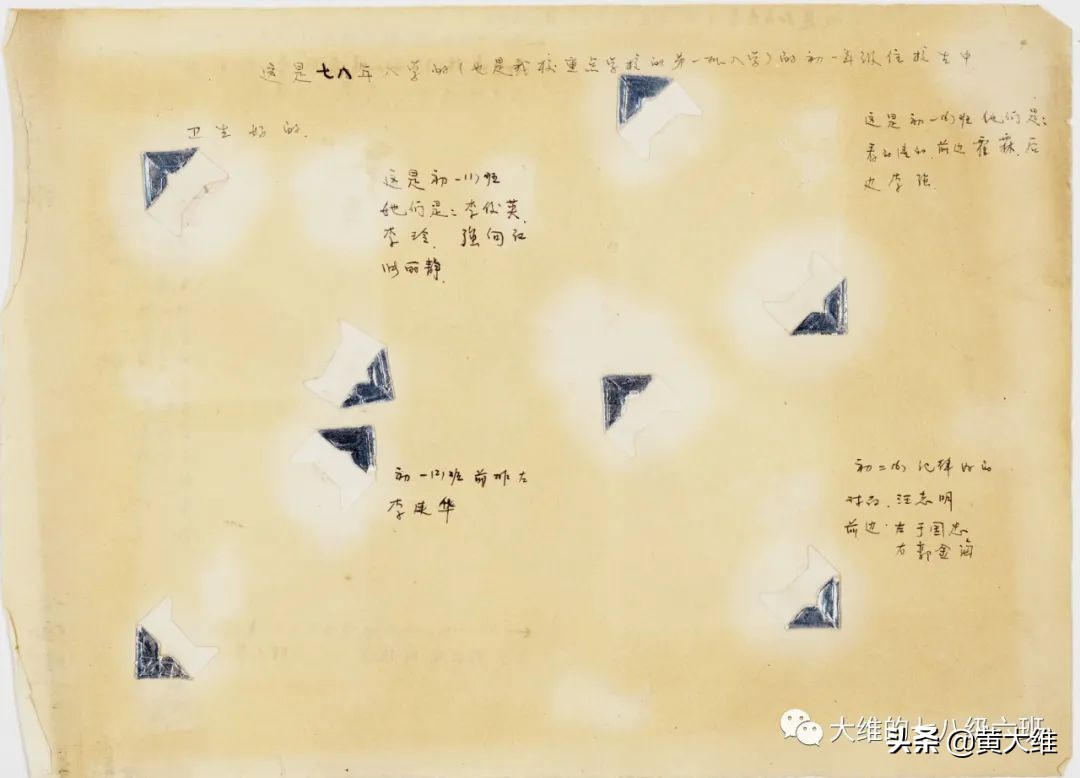 这是七八年入学的(也是我校重点学校的第一批入学)的初一年级住校生中
卫生好的.
这是初一(1)班
她们是:李俊英.
李玲. 强向红
丽静.
这是初一(6)班 他们是:
前边 霍霖. 后
边李强.
初一(2)班 前排左
李建华
初二(6) 纪律好的
汪志明
前边:左于国忠
右郭金海
大维的七八级六班
头条 @黄大维